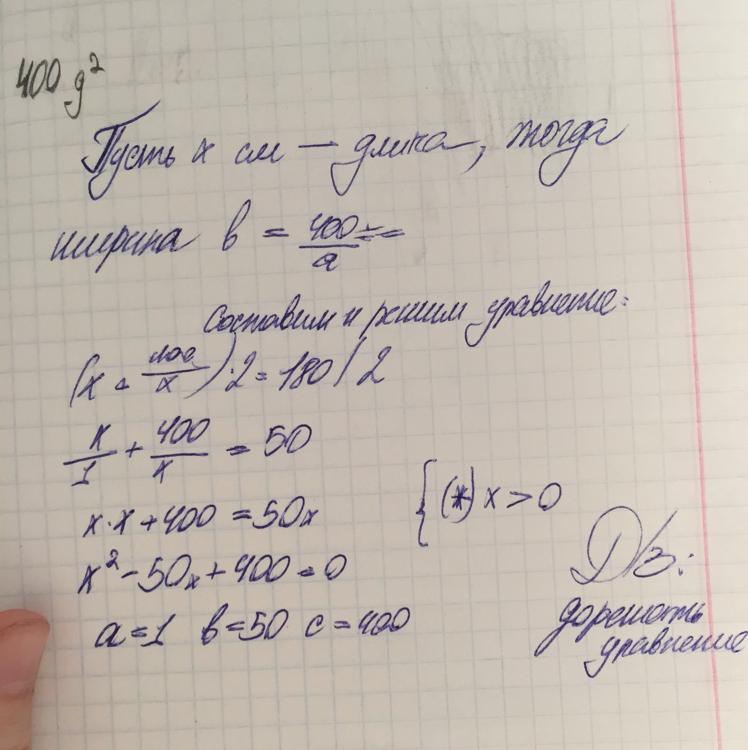 400 g²
Пусть x см — длина, тогда
ширина b = 400/a =
Составим и решим уравнение:
(x + 400/x) · 2 = 180 / 2
x/1 + 400/x = 50
x · x + 400 = 50x
{ (*) x > 0
x² - 50x + 400 = 0
a = 1 b = 50 c = 400
Д/з:
дорешать
уравнение